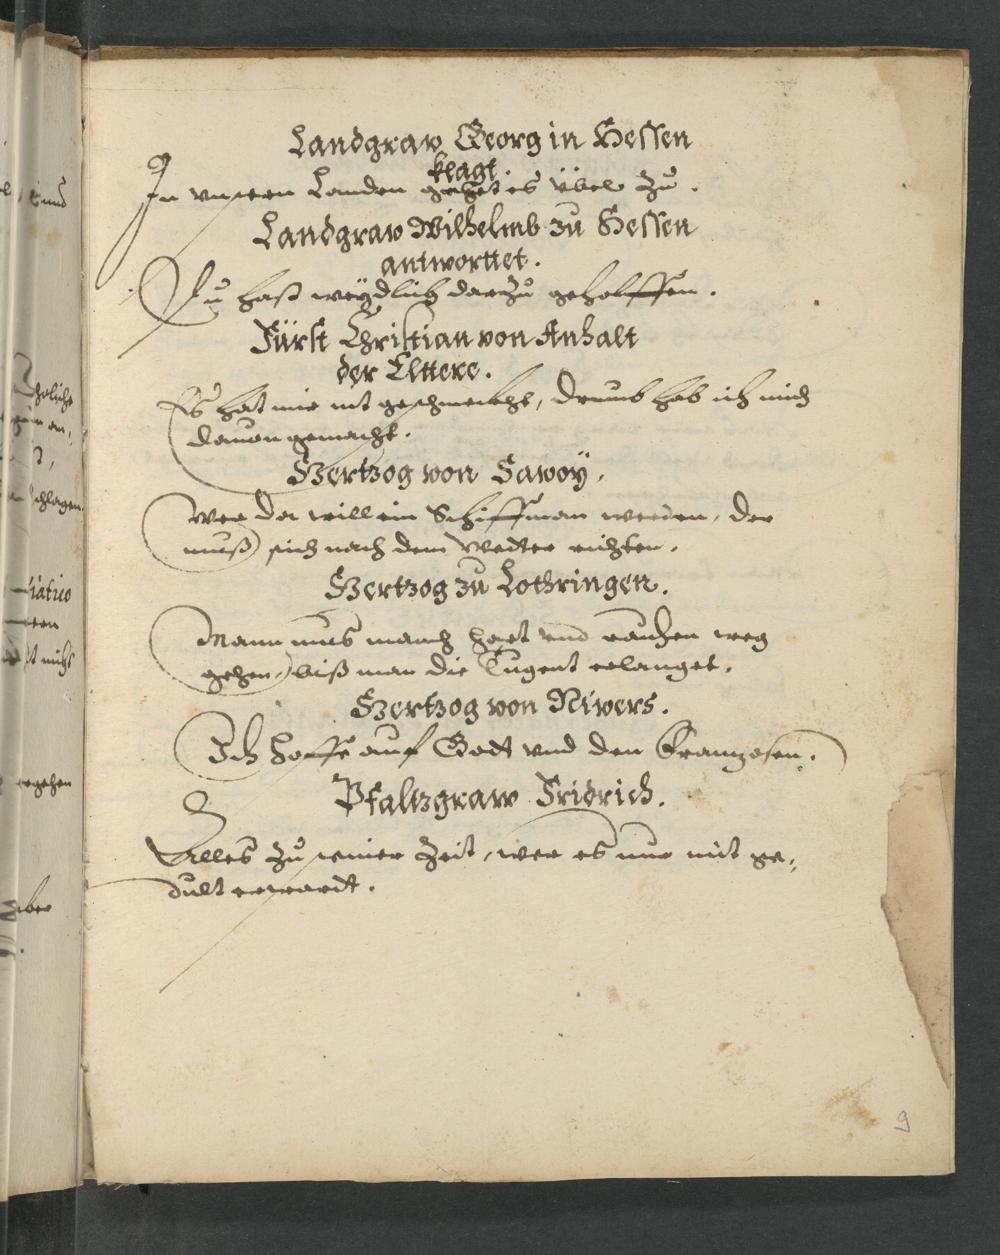 Landgraw Georg in Hessen
klagt.
In vnseren Landen gehet es übel zu.
Landgraw Wilhelmb zu Hessen
antworttet.
Du hast weydlich darzu geholffen.
Fürst Christian von Anhalt
der Elttere.
Es hat mir nit geschmeckht, drumb hab ich mich
dauon gemacht.
Hertzog von Savoÿ.
Wer da will ein Schiffman werden, der
muß sich nach dem Wetter richten.
Hertzog zu Lothringen.
Mann mus manch hart vnd rauhen weg
gehen, biß man die Tugent erlanget.
Hertzog von Nivers.
Ich hoffe auf Gott vnd den Franzosen.
Pfaltzgraw Fridrich.
Alles zu seiner Zeit, wer es nur mit ge,
dult erwardt.
9